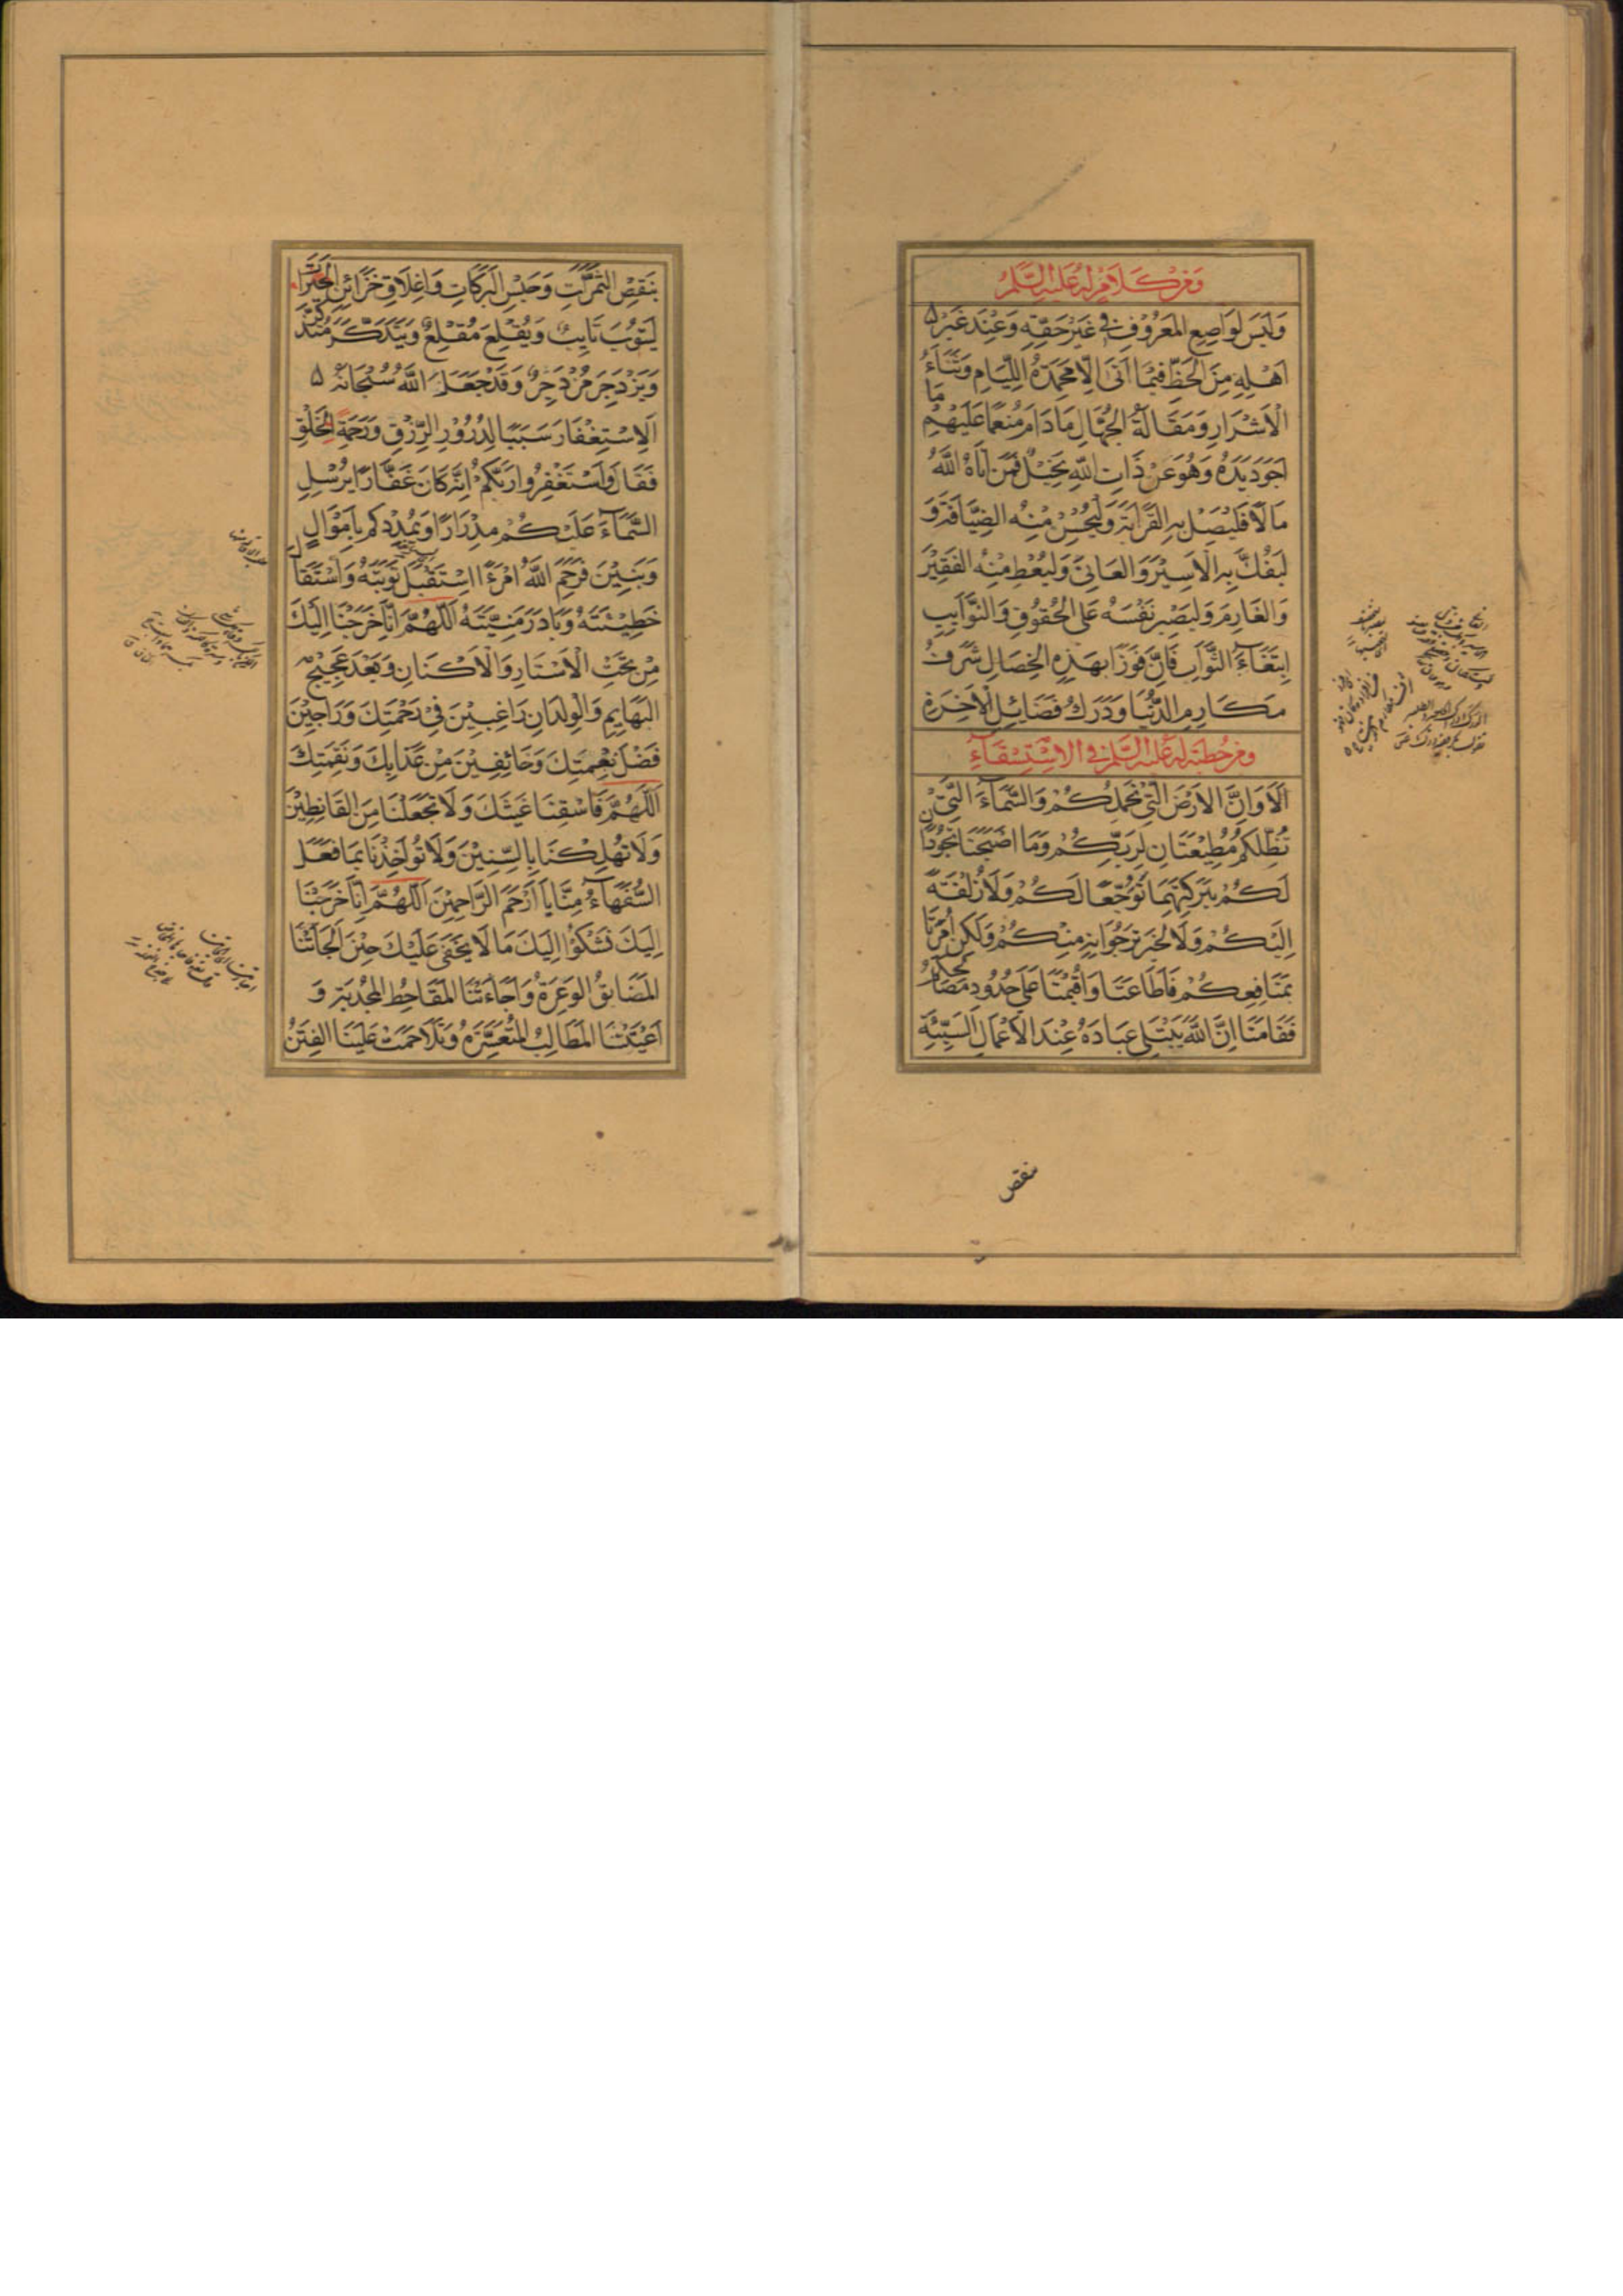 ومن كلام له عليه السلم
وَلَيسَ لِوَاضِعِ المَعرُوفِ في غَيرِ حَقِّهِ وَعِندَ غَيرِ
اَهلِهِ مِنَ الحَظِّ فيمَا اَتَى اِلّا مَحمَدَةُ اللِّيَامِ وَثَنَاءُ
الاَشرَارِ وَمَقَالَةُ الجُهَّالِ مَا دَامَ مُنعِمًا عَلَيهِم مَا
اَجوَدَ يَدَهُ وَهُوَ عَن ذَاتِ اللَّهِ بَخِيلٌ فَمَن اٰتَاهُ اللَّهُ
مَالًا فَليَصِل بِهِ القَرَابَةَ وَليُحسِن مِنهُ الضِّيَافَةَ وَ
ليَفُكَّ بِهِ الاَسِيرَ وَالعَانِيَ وَليُعطِ مِنهُ الفَقِيرَ
وَالغَارِمَ وَليَصبِر نَفسَهُ عَلَى الحُقُوقِ وَالنَّوَايِبِ
اِبتِغَاءَ الثَّوَابِ فَاِنَّ فَوزًا بِهَذِهِ الخِصَالِ شَرَفُ
مَكَارِمِ الدُّنيَا وَدَرَكُ فَضَائِلِ الاٰخِرَةِ
ومن خطبة له عليه السلم في الاستسقاء
اَلَا وَاِنَّ الاَرضَ الَّتي تَحمِلُكُم وَالسَّمَاءَ الَّتي
تُظِلُّكُم مُطِيعَتَانِ لِرَبِّكُم وَمَا اَصبَحَتَا تَجُودَانِ
لَكُم بِبَرَكَتِهِمَا تَوَجُّعًا لَكُم وَلَا زُلفَةً
اِلَيكُم وَلَا لِخَيرٍ تَرجُوَانِهِ مِنكُم وَلَكِن اُمِرَتَا
بِمَنَافِعِكُم فَاَطَاعَتَا وَاُقِيمَتَا عَلَى حُدُودِ مَصَالِحِكُم
فَقَامَتَا اِنَّ اللَّهَ يَبتَلِي عِبَادَهُ عِندَ الاَعمَالِ السَّيِّئَةِ
بنقص
بِنَقصِ الثَّمَرَاتِ وَحَبسِ البَرَكَاتِ وَاِغلَاقِ خَزَائِنِ الخَيرَاتِ
لِيَتُوبَ تَايِبٌ وَيُقلِعَ مُقلِعٌ وَيَتَذَكَّرَ مُتَذَكِّرٌ
وَيَزدَجِرَ مُزدَجِرٌ وَقَد جَعَلَ اللَّهُ سُبحَانَهُ
اَلِاستِغفَارَ سَبَبًا لِدُرُورِ الرِّزقِ وَرَحمَةِ الخَلقِ
فَقَالَ وَاستَغفِرُوا رَبَّكُم اِنَّهُ كَانَ غَفَّارًا يُرسِلِ
السَّمَاءَ عَلَيكُم مِدرَارًا وَيُمدِدكُم بِاَموَالٍ
وَبَنِينَ فَرَحِمَ اللَّهُ امرَءًا اِستَقبَلَ تَوبَتَهُ وَاستَقَالَ
خَطِيئَتَهُ وَبَادَرَ مَنِيَّتَهُ اَللَّهُمَّ اِنَّا خَرَجنَا اِلَيكَ
مِن تَحتِ الاَستَارِ وَالاَكنَانِ وَبَعدَ عَجِيجِ
البَهَايِمِ وَالوِلدَانِ رَاغِبِينَ في رَحمَتِكَ وَرَاجِينَ
فَضلَ نِعمَتِكَ وَخَائِفِينَ مِن عَذَابِكَ وَنَقِمَتِكَ
اَللَّهُمَّ فَاسقِنَا غَيثَكَ وَلَا تَجعَلنَا مِنَ القَانِطِينَ
وَلَا تُهلِكنَا بِالسِّنِينَ وَلَا تُوَاخِذنَا بِمَا فَعَلَ
السُّفَهَاءُ مِنَّا يَا اَرحَمَ الرَّاحِمِينَ اَللَّهُمَّ اِنَّا خَرَجنَا
اِلَيكَ نَشكُوا اِلَيكَ مَا لَا يَخفَى عَلَيكَ حِينَ اَلجَاَتنَا
المَضَايِقُ الوَعرَةُ وَاَجَاءَتنَا المَقَاحِطُ المُجدِبَةُ وَ
اَعيَتنَا المَطَالِبُ المُتَعَسِّرَةُ وَتَلَاحَمَت عَلَينَا الفِتَنُ